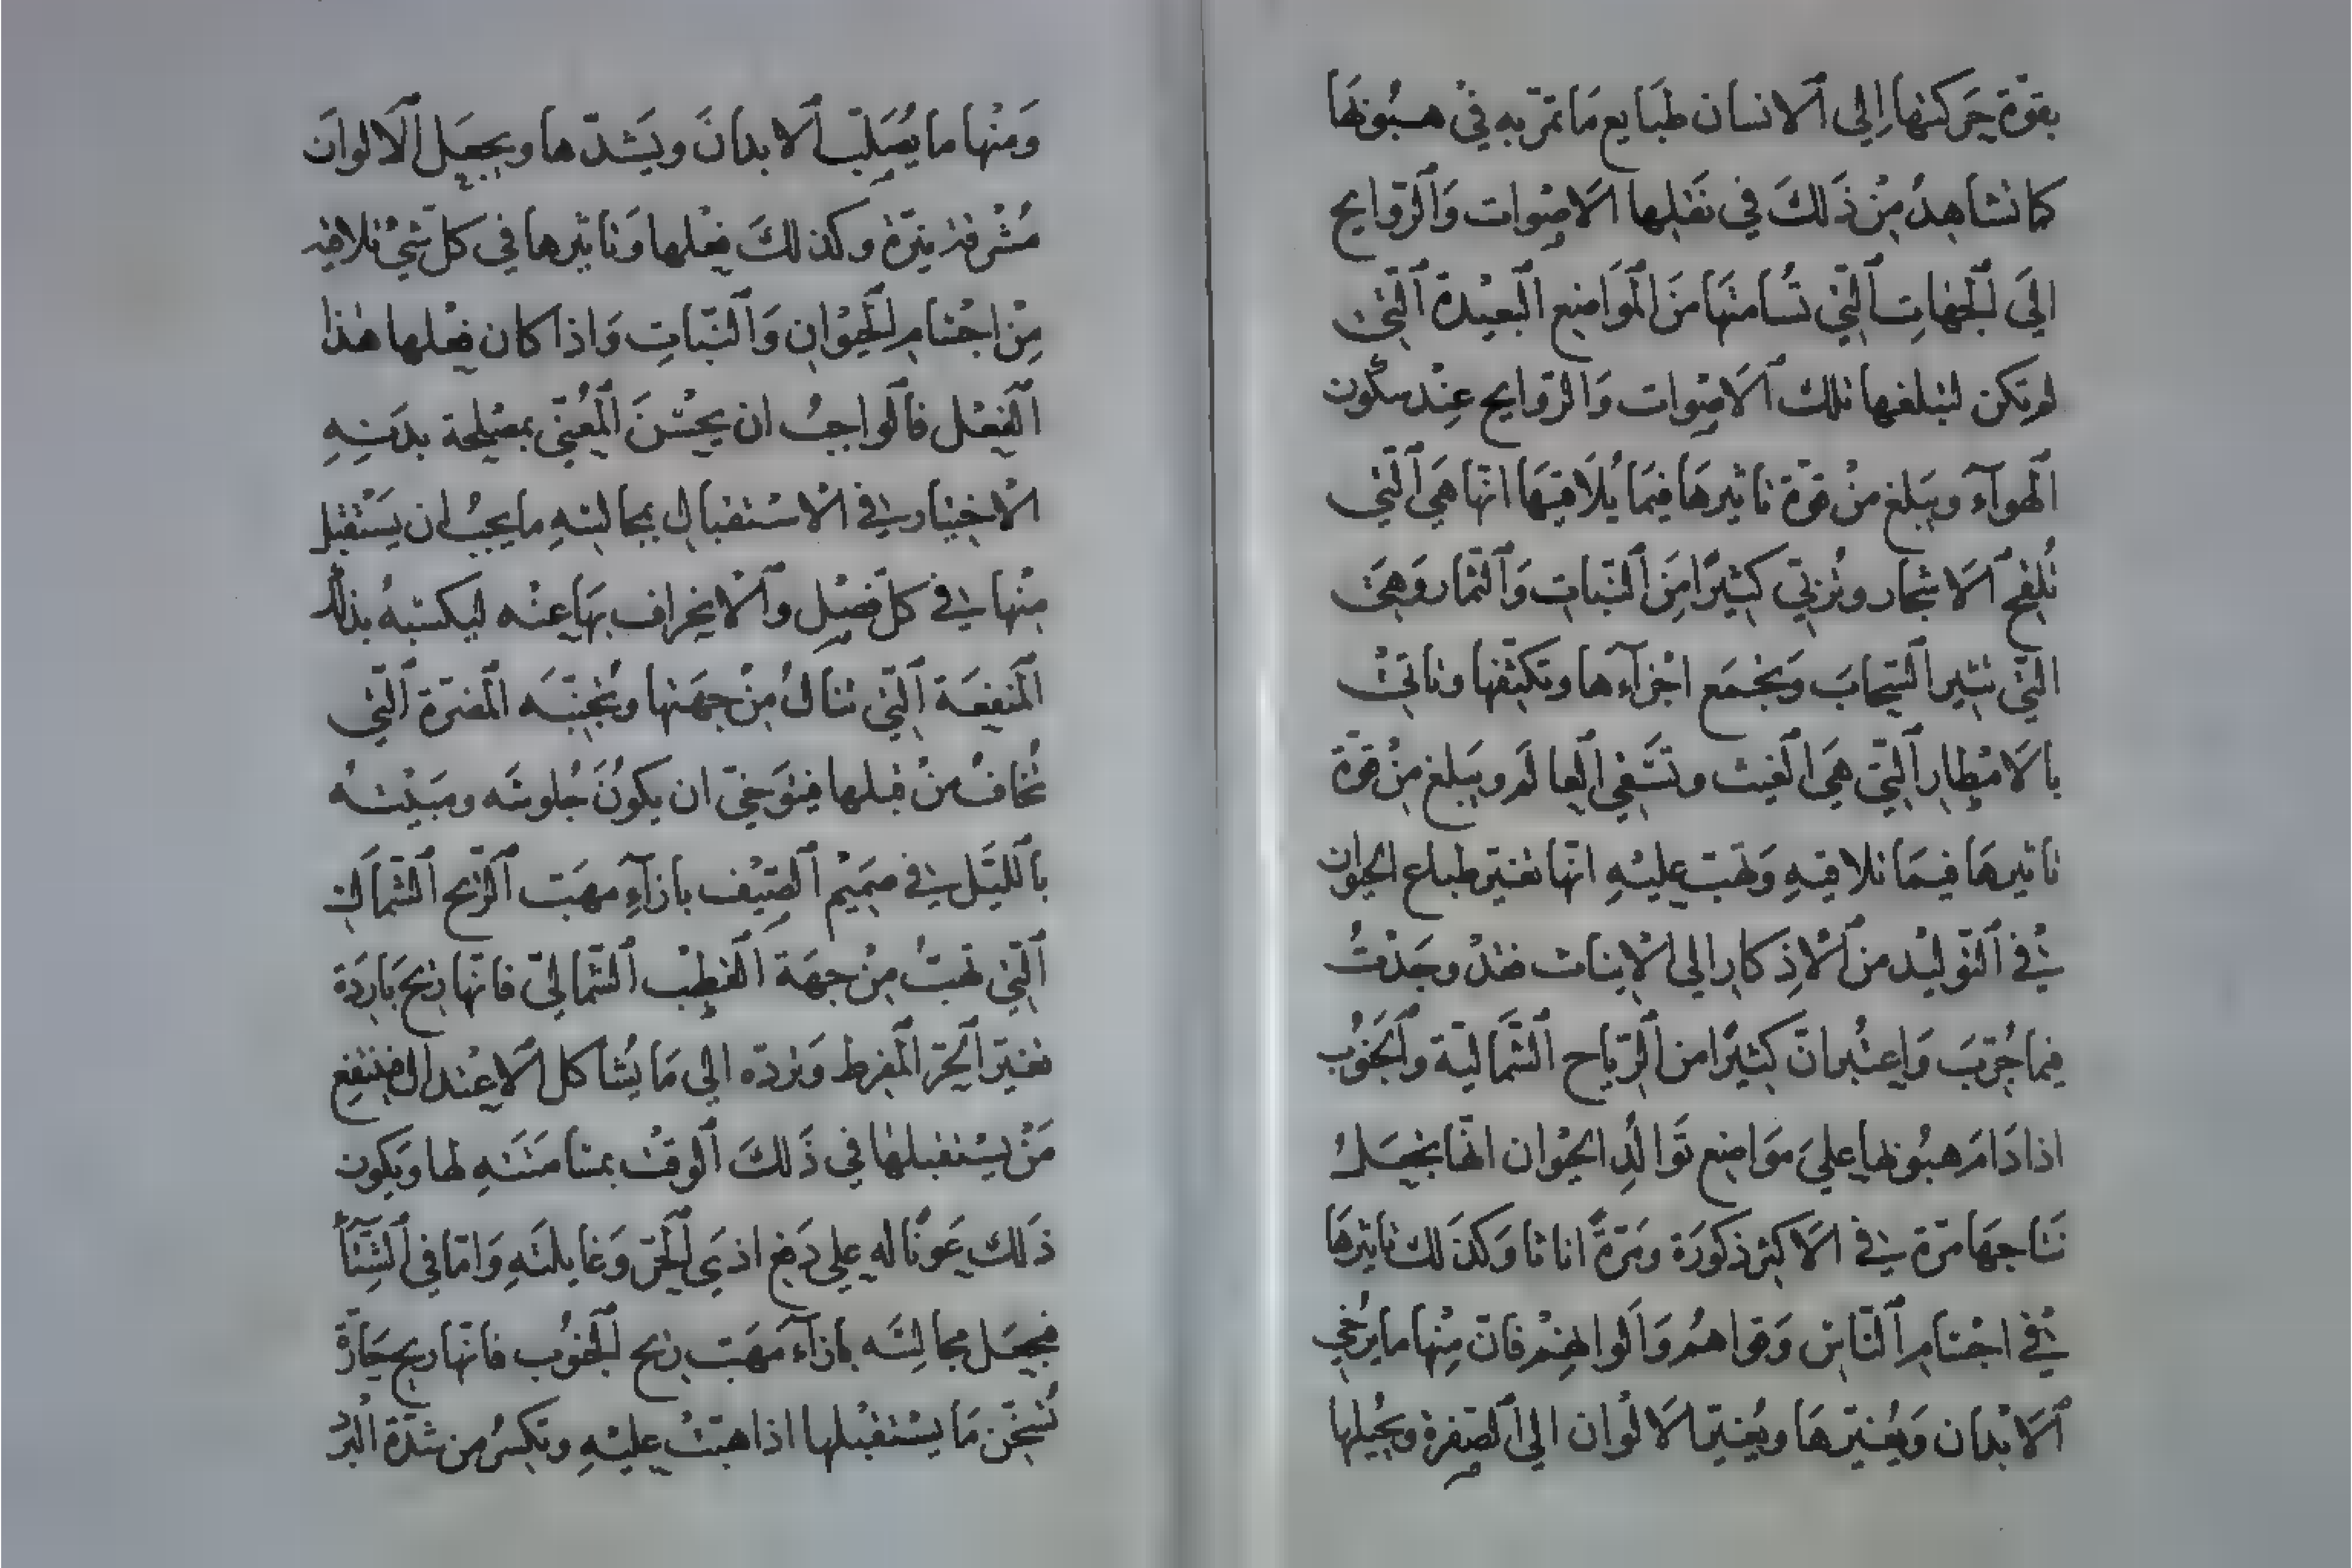 بقوّة حركتها إلى الانسان طبايع مَا تمرّ به في هبُوبهَا
كما نشاهدُ مِنْ ذَلكَ في نَقلِها الاَصْوات وَالرّوايح
الىَ الجهاتِ الّتي تُسَامتهَا مَنَ الموَاضِع البَعيْدة الّتي
لم تكن لتبلغها تلك الاَصْوات وَالرّوايح عِنْد سكُون
الهوآء ويبَلغ منْ قوّة تاثيرهَا فيمَا يُلاَقيَها انّهَا هيَ الّتي
تُلقح الاَشجار وتُربّي كثيرًا مِنَ النّبات وَالثمار وَهيَ
التّي تثير السّحابَ وَيجْمَع اجْزآءها وتكثّفها وتاتيْ
بالاَمْطار الّتي هيَ الغيث وتسَقي العالم ويبَلغ مِنْ قوّة
تاثيرهَا فيمَا تلاقيهِ وَتهبّ عليْهِ انّها تغيّر طباع الحيوان
في التّوليْد منَ الاْذكار الى الاْيناث فقدْ وجَدْتُ
فيما جُرّبَ وَاعتُبر انّ كثيرًا من الرّياح الشّماليّة وَالجنُوب
اذا دَامَ هبُوبها علىَ موَاضع توَالُد الحيوْان انّها يجْعَلُ
نتَاجهَا مرّة في الاَكثر ذكورَة ومَرّةً اناثا وَكذَلك تاثيرهَا
في اجْسَام النّاسْ وَقواهُم وَاَلوانهِمْ فانّ مِنْها ما يرُخي
الاَبْدان وَيُغيّرهَا ويُغيّر الاَلْوان الى الصّفرة ويُحيلها
وَمنْها ما يُصَلّبُ الاَبدانَ ويَشدّها ويجعَل الاَلوانَ
مُشْرقة نيّرة وكذلكَ فعْلها وَتاثيرها في كلّ شيْء تلاقيه
مِنْ اجْسَام الحيَوْانِ وَالنّباتِ وَاذا كان فعْلها هذا
الفعْل فالواجبُ ان يحْسُنَ المُعْنى بمصْلحة بدَنهِ
الاْختيار في الاْستقبال بمجالسَهِ ما يجبُ ان يَسْتقبل
منْها في كلّ فصْل وَالاْنحراف بهَا عنْه ليكسبهُ بذلك
المَنفعَة الّتي تنالُ مِنْ جهَتها ويُجنّبَه المضَرّة الّتي
تُخافُ منْ قبلها فيتوَخّى ان يكونَ جُلوسَه ومبَيْتهُ
باللّيَل في صَميْم الصّيْف بازآءِ مهبّ الرّيح الشّمال
الّتي تهبّ مِنْ جهَة القطْب الشّماليّ فانّها ريح بَاردَة
تغيّر الحَرّ المفرط وَتردّه الى مَا يُشاكل الاَعتدال فينتفع
مَنْ يسْتقبلها في ذَلكَ الوقت بمسَامتَتهِ لها ويَكون
ذَلك عَونًا له على دَفع اذىَ الحَرّ وَغايلتَهِ وَامّا في الشّتآء
فيجعَل مجالسَه بازآء مَهبّ ريح الجنُوب فانّها ريح حَارّة
تُسَخّن مَا يسْتقبْلها اذا هبّتْ عليْهِ وتكسُر من شدّة البرْد